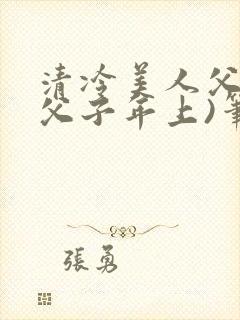 清冷美人父
父子年上)筆
張勇